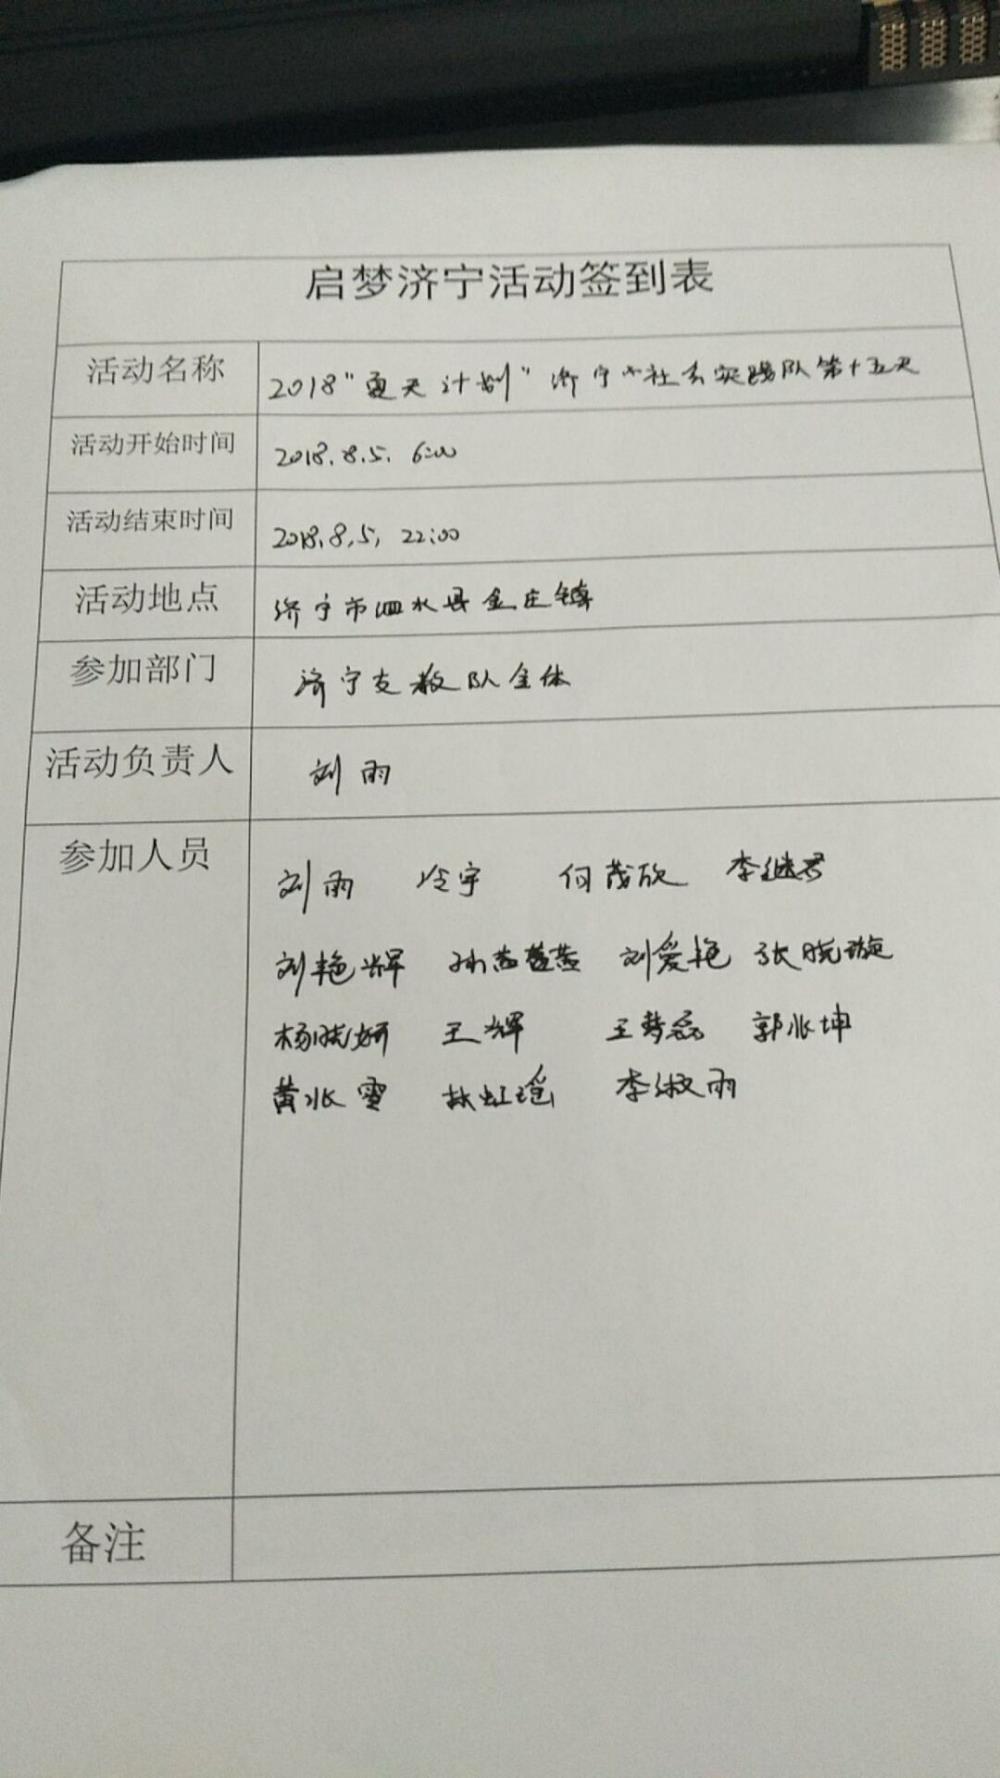 启梦济宁活动签到表
活动名称 2018"夏天计划"济宁 社会实践队第十五天
活动开始时间 2018.8.5. 6:00
活动结束时间 2018.8.5. 22:00
活动地点 济宁市泗水县金庄镇
参加部门 济宁支教队全体
活动负责人 刘雨
参加人员 刘雨 冷宇 何茂欣 李继君
刘艳辉 孙 刘爱艳 张晓璇
杨晓妍 王辉 王梦磊 郭兆坤
黄兆雪 林虹瑶 李淑雨
备注